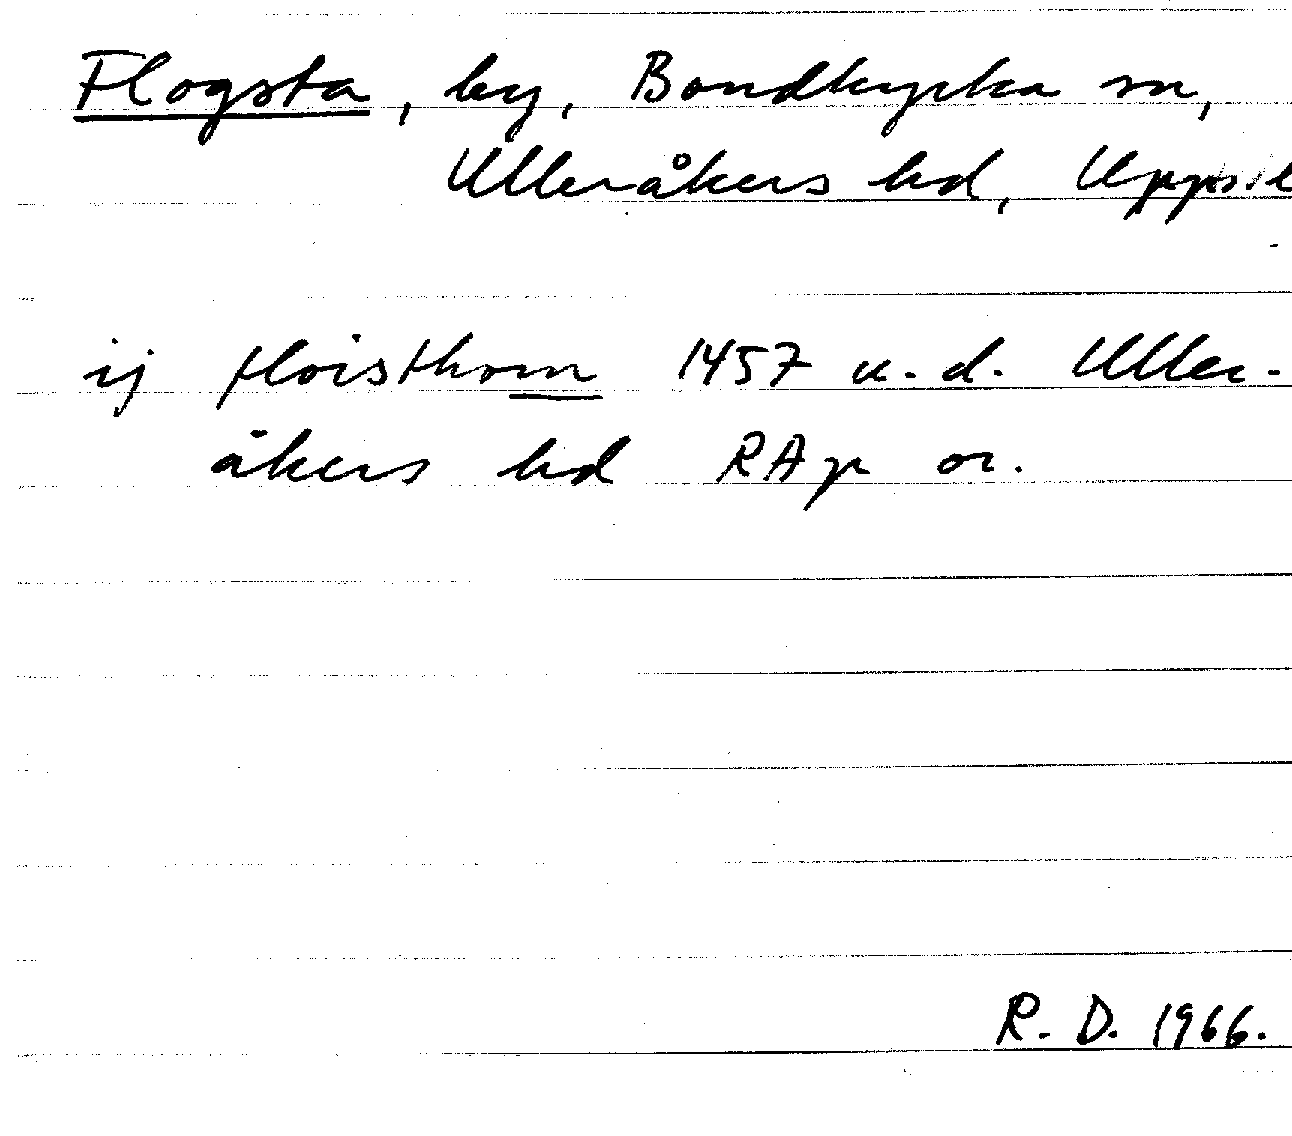 Flogsta, by, Bondkyrka sn,
Ulleråkers hd, Upps.l
ij floisthom 1457 u.d. Uller-
åkers hd RAp or.
R. D. 1966.